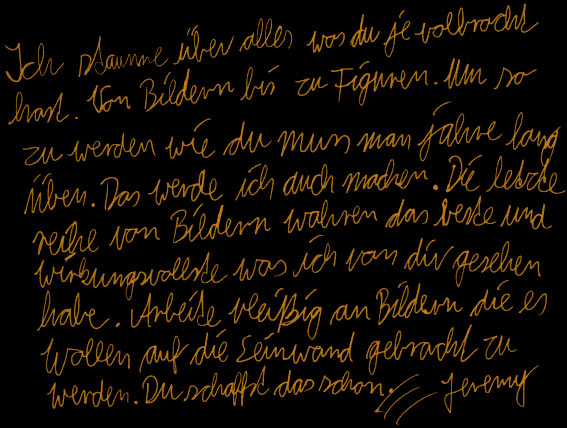 Ich staune über alles was du je volbracht
hast. Von Bildern bis zu Figuren. Um so
zu werden wie du muss man jahre lang
üben. Das werde ich auch machen. Die letzte
reihe von Bildern wahren das beste und
wirkungsvollste was ich von dir gesehen
habe. Arbeite vleißig an Bildern die es
wollen auf die Leinwand gebracht zu
werden. Du schaffst das schon. Jeremy